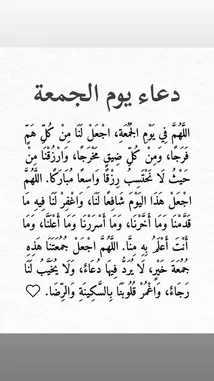 دعاء يوم الجمعة
اللَّهُمَّ فِي يَوْمِ الْجُمُعَةِ، اجْعَلْ لَنَا مِنْ كُلِّ هَمٍّ
فَرَجًا، وَمِنْ كُلِّ ضِيقٍ مَخْرَجًا، وَارْزُقْنَا مِنْ
حَيْثُ لَا نَحْتَسِبُ رِزْقًا وَاسِعًا مُبَارَكًا. اللَّهُمَّ
اجْعَلْ هَذَا الْيَوْمَ شَافِعًا لَنَا، وَاغْفِرْ لَنَا فِيهِ مَا
قَدَّمْنَا وَمَا أَخَّرْنَا، وَمَا أَسْرَرْنَا وَمَا أَعْلَنَّا، وَمَا
أَنْتَ أَعْلَمُ بِهِ مِنَّا. اللَّهُمَّ اجْعَلْ جُمُعَتَنَا هَذِهِ
جُمُعَةَ خَيْرٍ، لَا يُرَدُّ فِيهَا دُعَاءٌ، وَلَا يُخَيَّبُ لَنَا
رَجَاءٌ، وَاغْمُرْ قُلُوبَنَا بِالسَّكِينَةِ وَالرِّضَا.